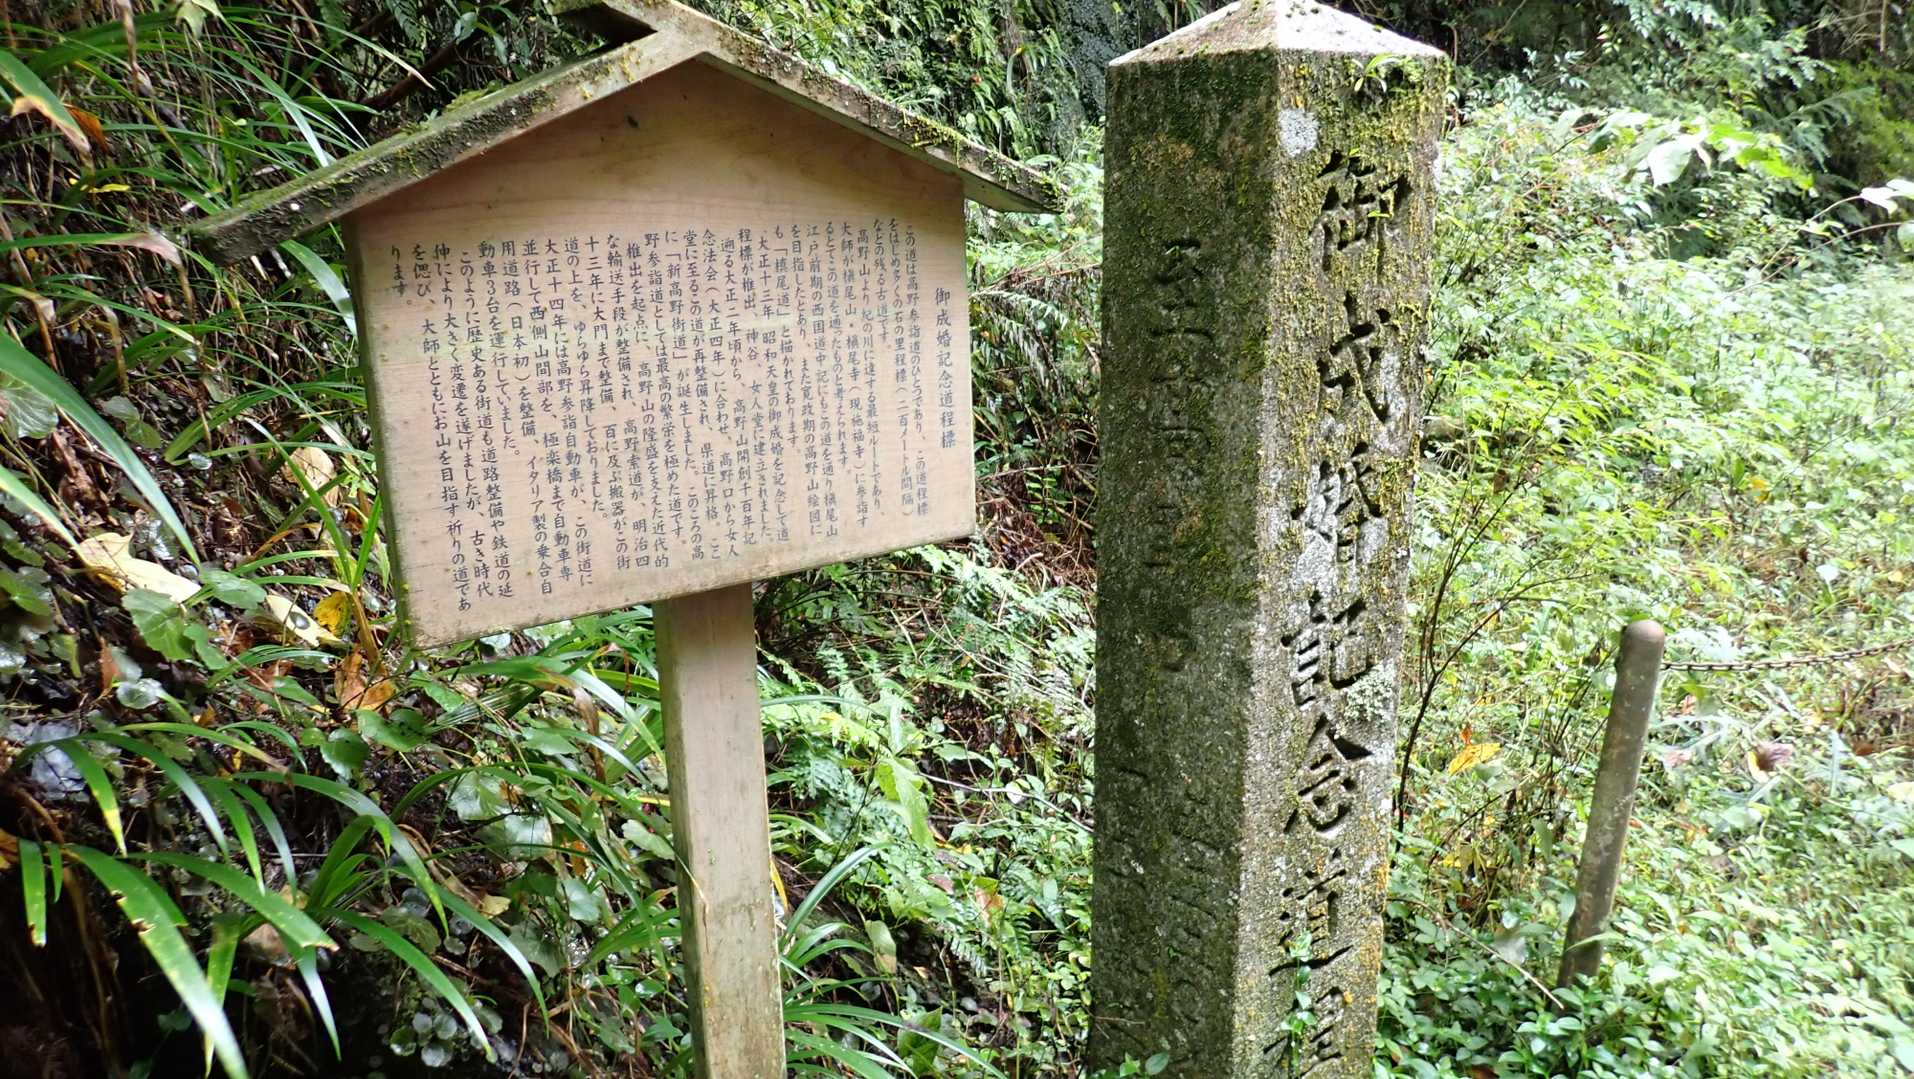 御成婚記念道程標
この道は高野参詣道のひとつであり、この道程標
をはじめ多くの石の里程標(一百メートル間隔)
などの残る古道です。
高野山より紀の川に達する最短ルートであり、
大師が槇尾山・槇尾寺(現施福寺)に参詣す
るとてこの道を通ったものと考えられます。
江戸前期の西国道中記にもこの道を通り槇尾山
を目指したとあり、また寛政期の高野山絵図に
も「槙尾道」と描かれております。
大正十三年 昭和天皇の御成婚を記念して道
程標が椎出、神谷、女人堂に建立されました。
遡る大正二年頃から、高野山開創千百年記
念法会(大正四年)に合わせ、高野口から女人
堂に至るこの道が再整備され、県道に昇格。ここ
に「新高野街道」が誕生しました。このころの高
野参詣道としては最高の繁栄を極めた道です。
椎出を起点に、高野山の隆盛を支えた近代的
な輸送手段が整備され、高野索道が、明治四
十三年に大門まで整備、百に及ぶ搬器がこの街
道の上を、ゆらゆら昇降しておりました。
大正十四年には高野参詣自動車が、この街道に
並行して西側山間部を、極楽橋まで自動車専
用道路(日本初)を整備、イタリア製の乗合自
動車3台を運行していました。
このように歴史ある街道も道路整備や鉄道の延
伸により大きく変遷を遂げましたが、古き時代
を偲び、大師とともにお山を目指す祈りの道であ
ります。
御成婚記念道程